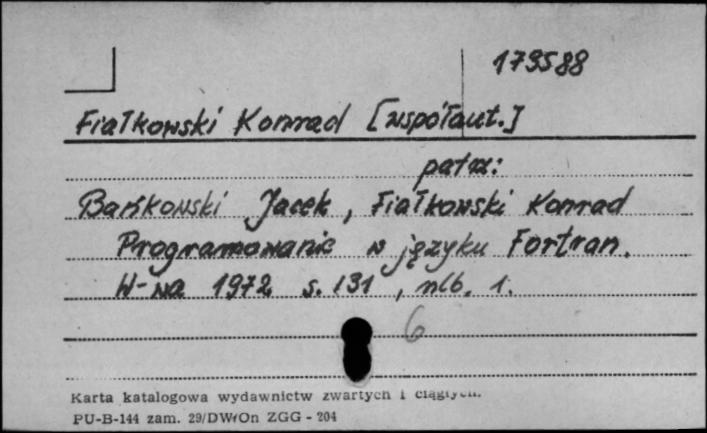 179588
Fiałkowski Konrad [współaut.]
patrz:
Bańkowski Jacek, Fiałkowski Konrad
Programowanie w języku Fortran.
W-wa 1972 s. 131, nlb. 1.
6
Karta katalogowa wydawnictw zwartych i ciągłych.
PU-B-144 zam. 29/DWrOn ZGG - 204